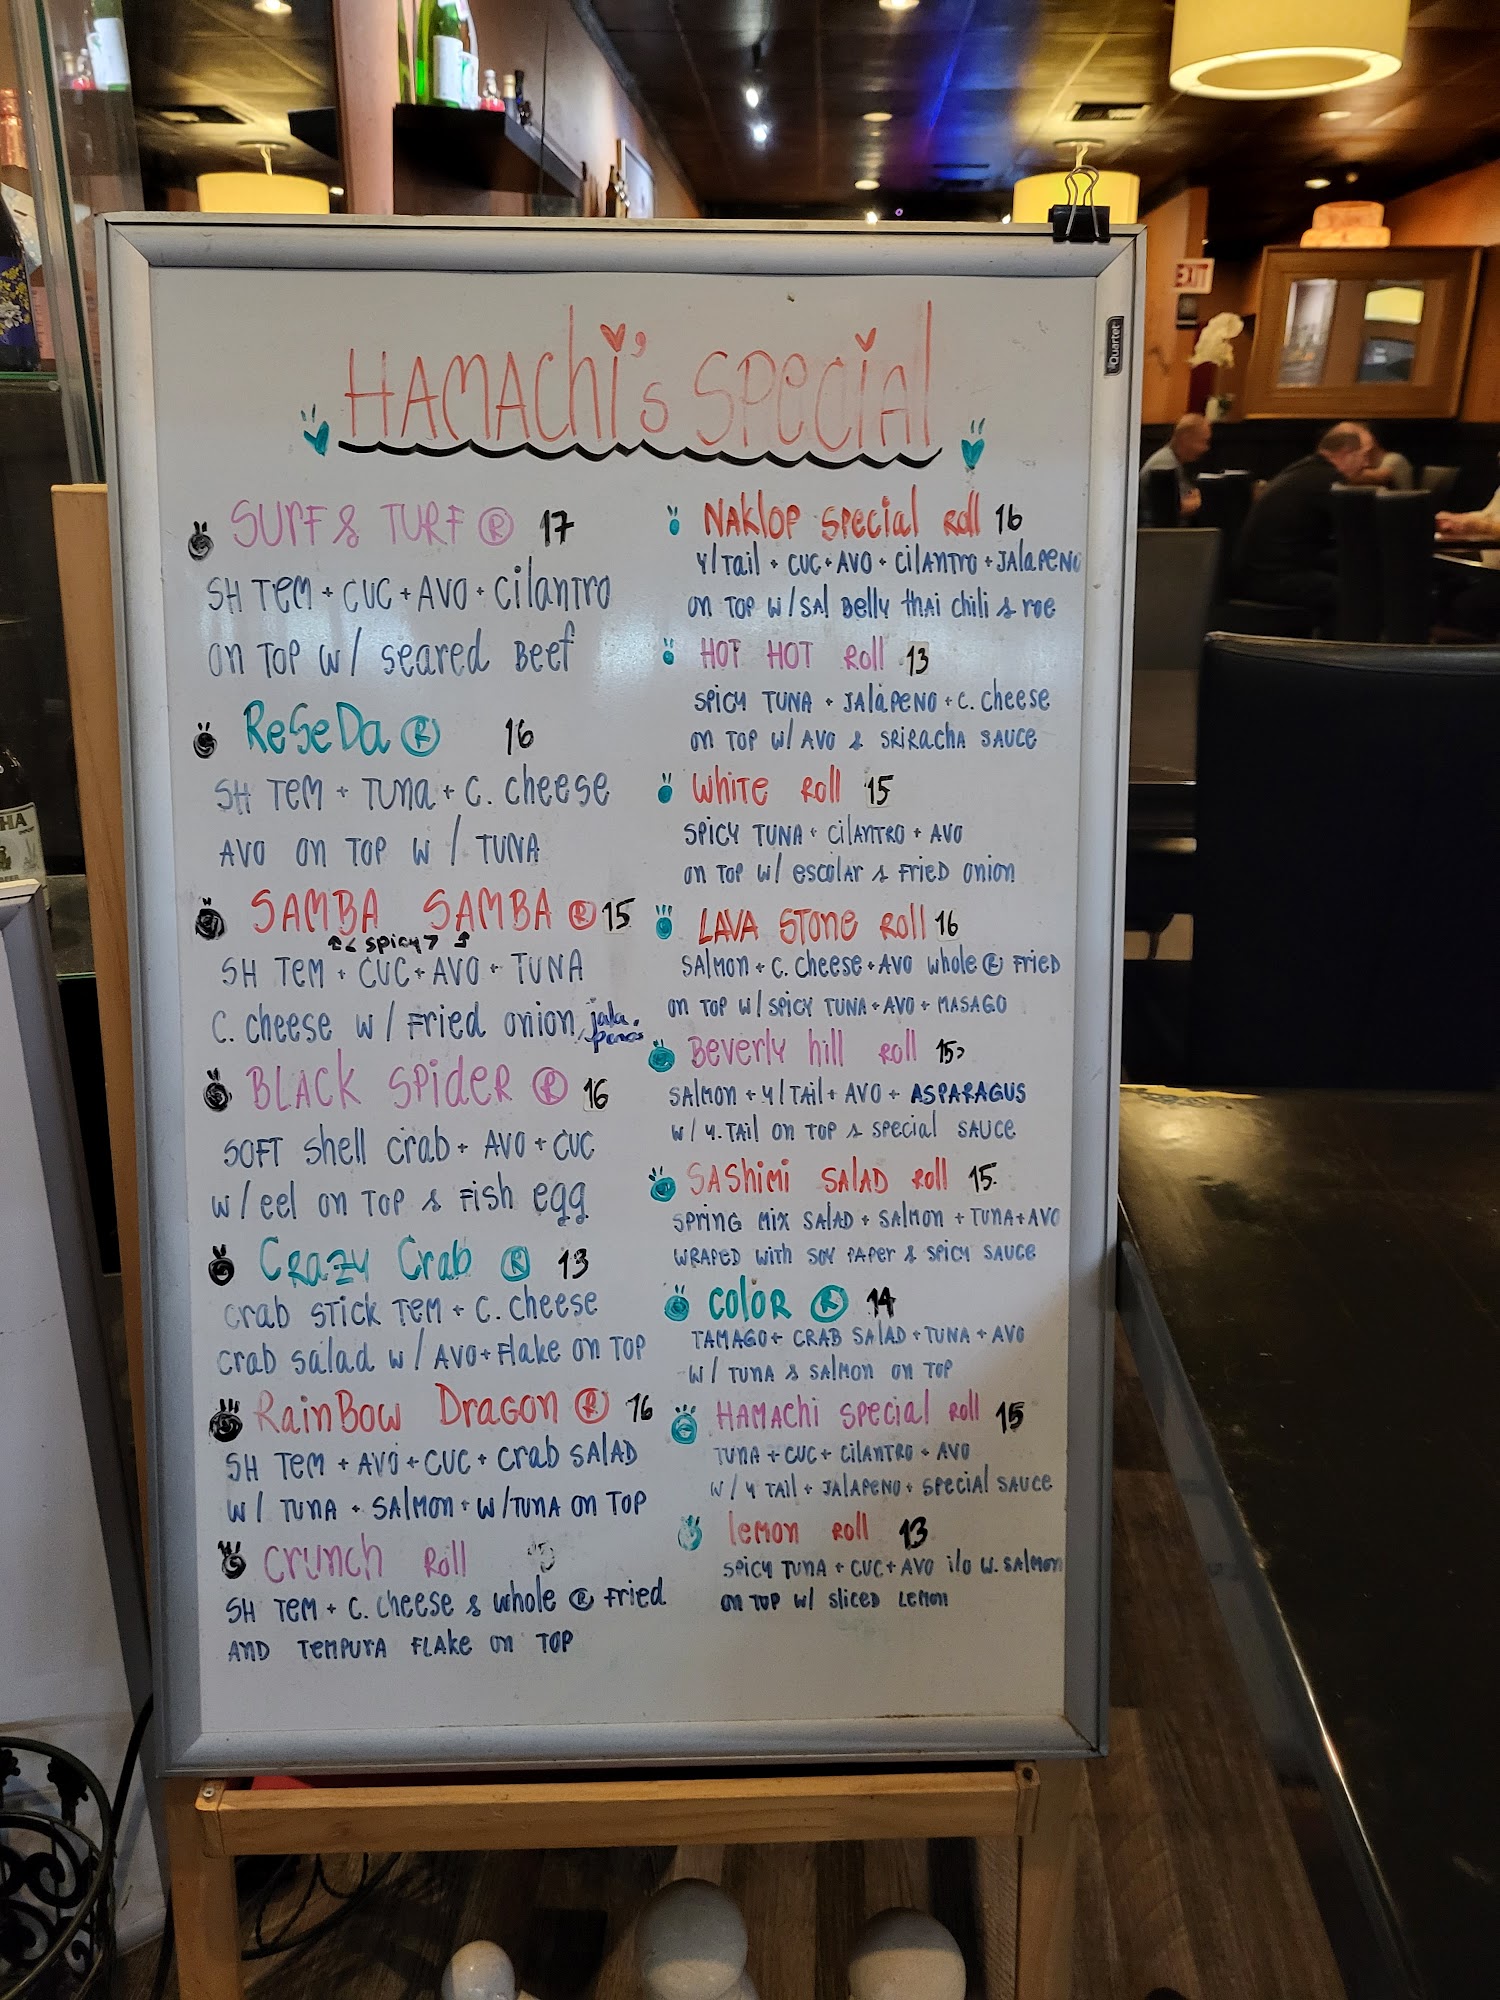 HAMAChi's Special
SURF & TURF Ⓡ 17
SH TEM + CUC + AVO + Cilantro
on TOP w/ seared Beef
ReSeDa Ⓡ 16
SH TEM + Tuna + C. cheese
AVO on TOP w / TUNA
SAMBA SAMBA Ⓡ 15
< spicy >
SH TEM + CUC + AVO + TUNA
C. cheese w/ Fried onion, jala.
penos
BLACK SPIDER Ⓡ 16
SOFT shell crab + AVO + CUC
w/eel on TOP & Fish egg
Crazy Crab Ⓡ 13
crab STICK TEM + C. cheese
crab salad w/ AVO + Flake on TOP
RainBow Dragon Ⓡ 16
SH TEM + AVO + CUC + crab SAlAD
W/ TUNA + SAlMON + W/TUNA on TOP
Crunch Roll
SH TEM + C. cheese & whole Ⓡ Fried
AND TEMPURA FLAke on TOP
NAKlOP Special Roll 16
Y/Tail + CUC + AVO + CilANTRO + JAlAPENO
on TOP w/SAl Belly thAi chili & roe
HOT HOT Roll 13
SPICY TUNA + JAlAPENO + C. cheese
on TOP w/ AVO & SRiRACHA SAUCE
White Roll 15
SPICY TUNA + CilANTRO + AVO
on TOP w/ escolar & Fried onion
LAVA STONE Roll 16
SAlmon + C. Cheese + AVO whole Ⓡ Fried
on TOP w/SPICY TUNA + AVO + MASAGO
Beverly hill Roll 15
SAlmon + Y/TAil + AVO + ASPARAGUS
w/ Y.TAil on TOP & special SAUCE
SAShimi SAlAD Roll 15
SPRING MIX SAlAD + SAlmon + TUNA + AVO
WRAPED with SOY PAPER & SPICY SAUCE
COlOR Ⓡ 14
TAMAGO + CRAB SAlAD + TUNA + AVO
w/ TUNA & SAlmon on TOP
HAMAchi special Roll 15
TUNA + CUC + CilANTRO + AVO
w/ Y TAil + JAlAPENO + special SAUCE
lemon Roll 13
SPICY TUNA + CUC + AVO i/o W. SAlmon
on TOP w/ sliced Lemon
Quartet
EXIT